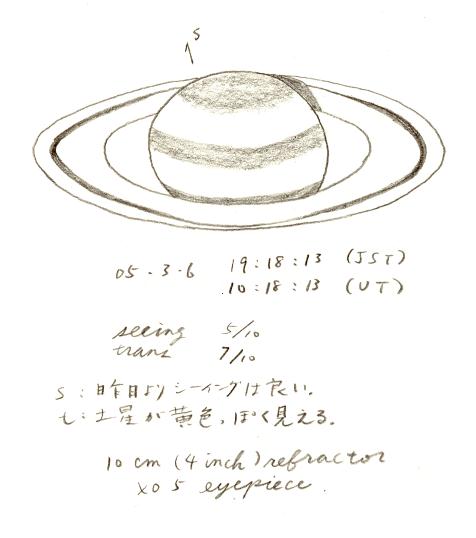 S
05・3・6 19:18:13 (JST)
10:18:13 (UT)
seeing 5/10
trans 7/10
s:昨日よりシーイングは良い。
t:土星が黄色っぽく見える。
10 cm (4 inch) refractor
XO 5 eyepiece.